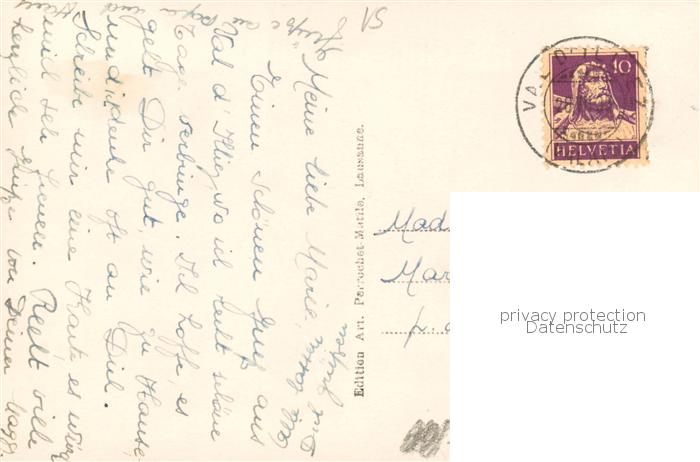 Meine liebe Marie,
Einen schönen Gruß aus
Val d'Illiez wo ich recht schöne
Tage verbringe. Ich hoffe, es
geht Dir gut, wie zu Hause
und denke oft an Dich.
Schreibe mir eine Karte es würde
mich sehr freuen. Recht viele
herzliche Grüße von Deiner Maggy.
VS
Edition Art. Perrochet-Matile, Lausanne.
Mad
Mar
10
HELVETIA
privacy protection
Datenschutz